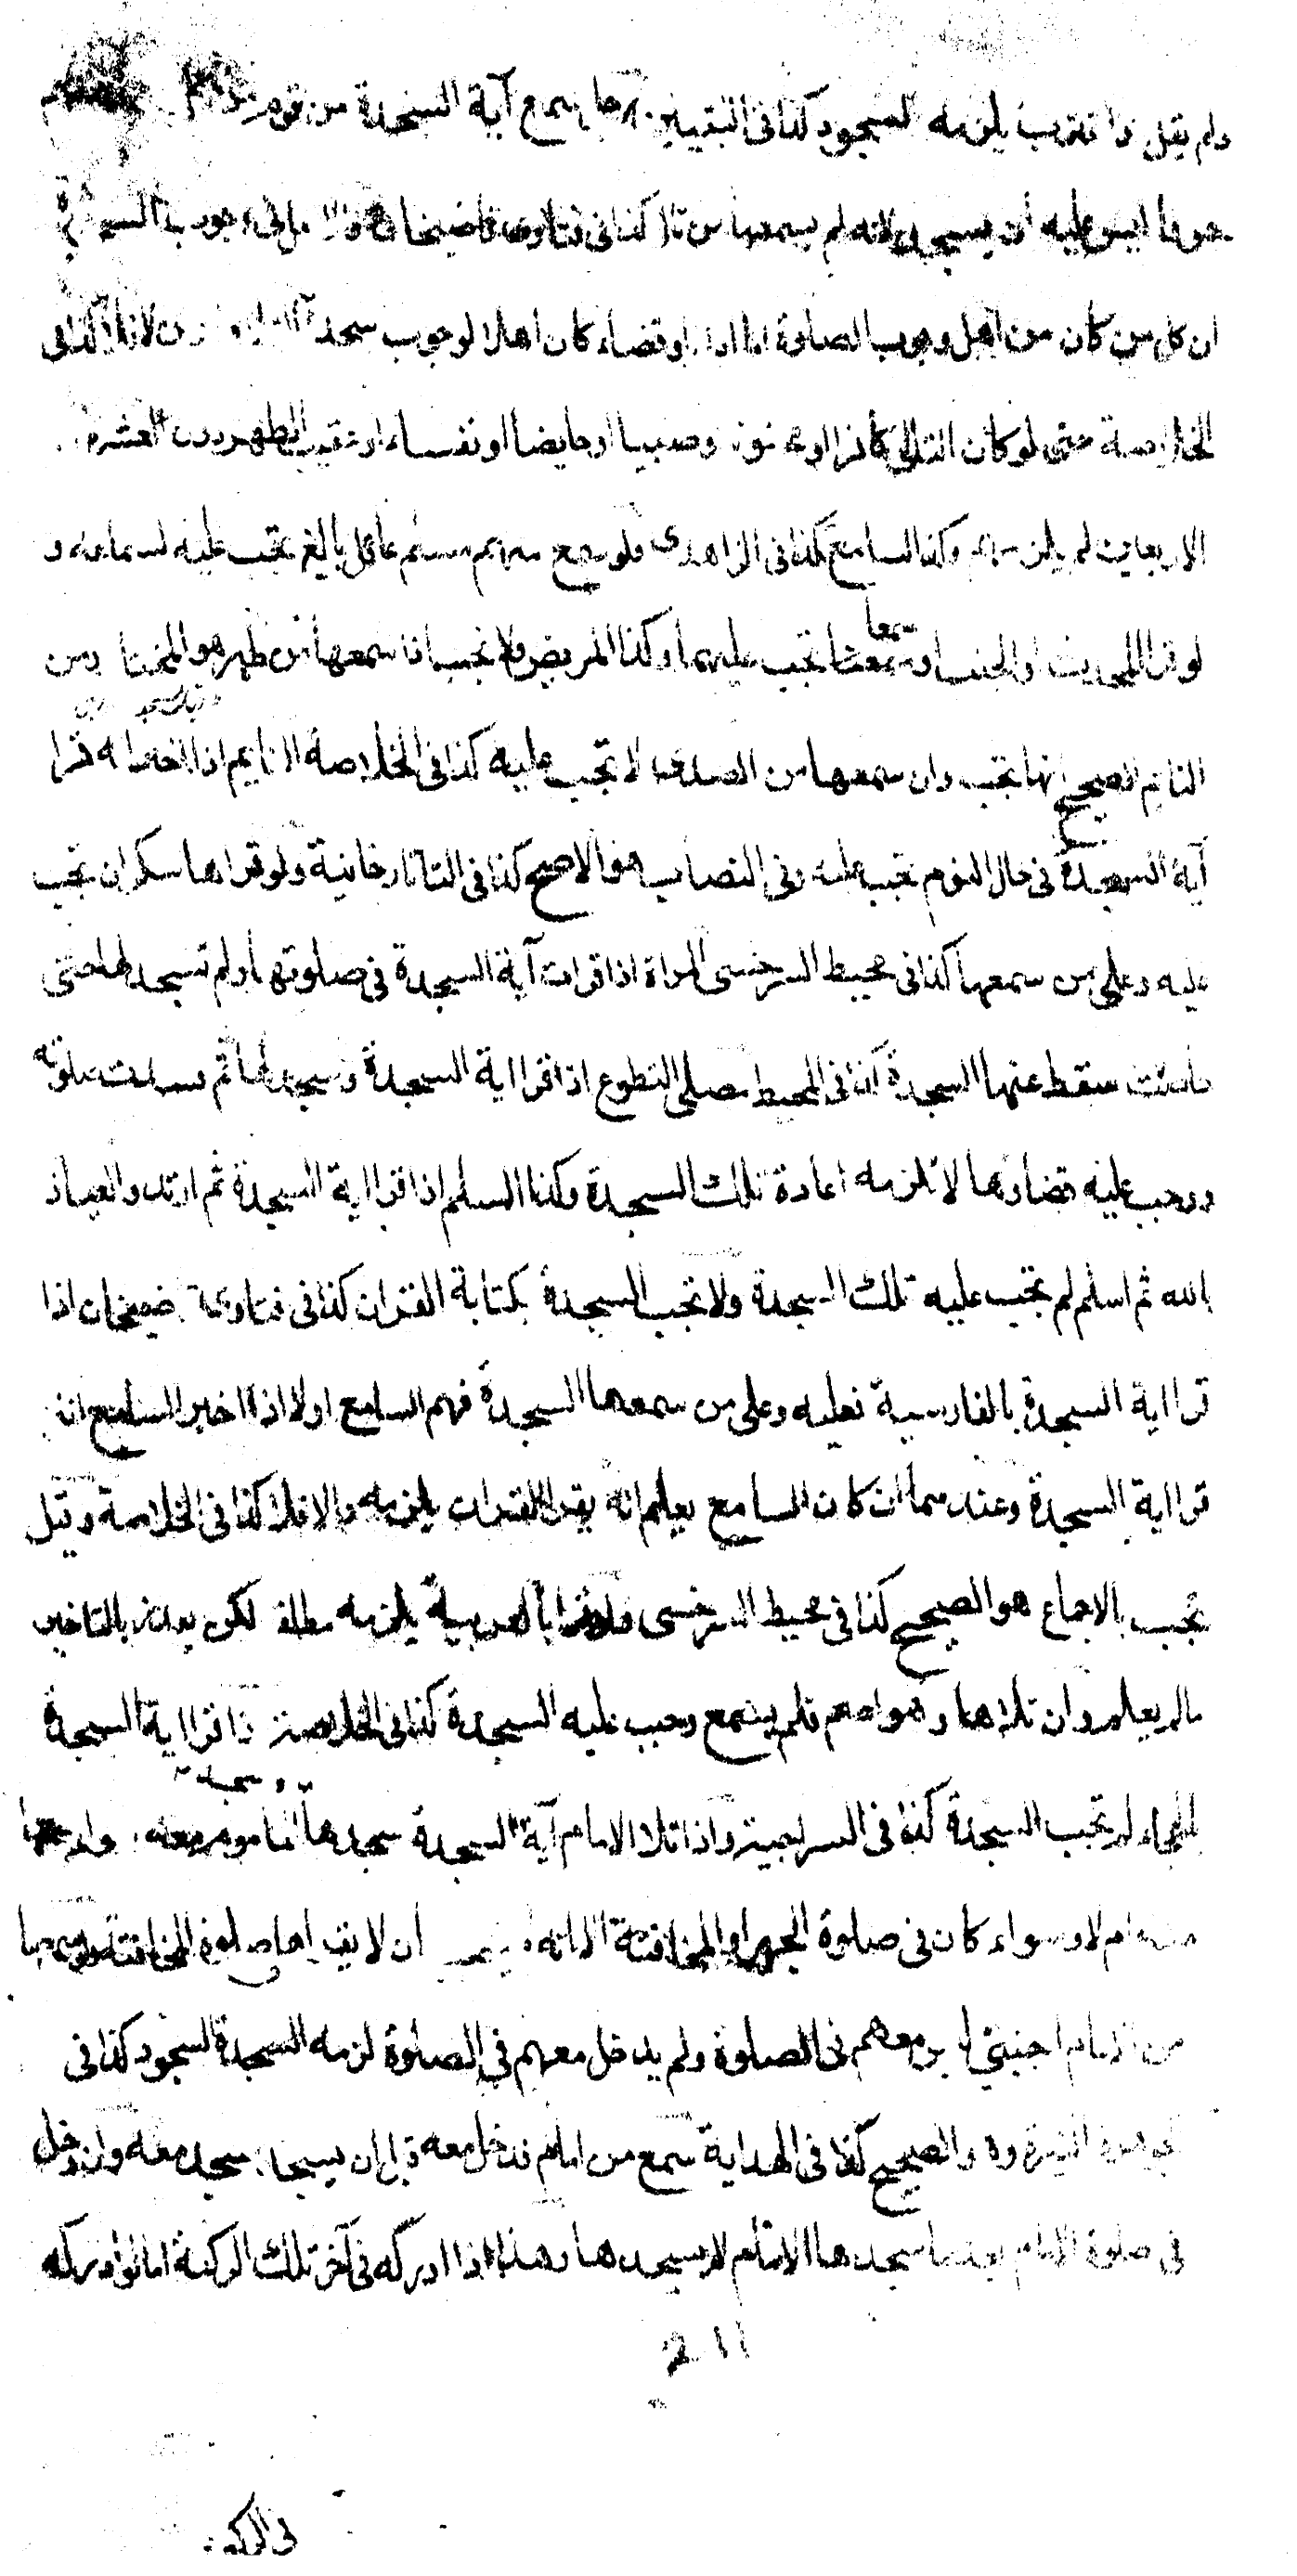 ولم يقل واقترب يلزمه السجود كذا فى التبيين رجل سمع آية السجدة من قوم
حرفا ليس عليه ان يسجد لانه لم يسمعها من تال كذا فى فتاوى قاضيخان والاصل فى وجوب السجدة
ان كل من كان من اهل وجوب الصلوة اما اداء او قضاء كان اهلا لوجوب سجدة التلاوة ومن لا فلا كذا فى
الخلاصة حتى لو كان التالى كافرا او مجنونا او صبيا او حايضا او نفساء او عقيب الطهر دون العشرة
الاربعين لم يلزمهم وكذا السامع كذا فى الزاهدى ولو سمع منهم مسلم عاقل بالغ تجب عليه لسماعه و
لو قرا المحدث او الجنب او سمعا تجب عليهما وكذا المريض ولا تجب اذا سمعها من طير هو المختار ومن
النايم الصحيح انها تجب وان سمعها من الصدى لا تجب عليه كذا فى الخلاصة النايم اذا اخبر انه قرا
آية السجدة فى حال النوم تجب عليه وفى النصاب هو الاصح كذا فى التاتارخانية ولو قراها سكران تجب
عليه وعلى من سمعها كذا فى محيط السرخسى المراة اذا قرات آية السجدة فى صلوتها ولم تسجد لها حتى
حاضت سقط عنها السجدة كذا فى المحيط مصلى التطوع اذا قرا اية السجدة وسجد لها ثم فسدت صلوته
ووجب عليه قضاؤها لا تلزمه اعادة تلك السجدة وكذا المسلم اذا قرا اية السجدة ثم ارتد والعياذ
بالله ثم اسلم لم تجب عليه تلك السجدة ولا تجب السجدة بكتابة القران كذا فى فتاوى قاضيخان اذا
قرا اية السجدة بالفارسية فعليه وعلى من سمعها السجدة فهم السامع او لا اذا اخبر السامع انه
قرا اية السجدة وعندهما ان كان السامع يعلم انه يقرا القران يلزمه والا فلا كذا فى الخلاصة وقيل
تجب بالاجماع هو الصحيح كذا فى محيط السرخسى ولو قرا بالعربية يلزمه مطلقا لكن يعذر بالتاخير
مالم يعلم وان تلاها وهو اصم فلم يسمع وجب عليه السجدة كذا فى الخلاصة اذا قرا اية السجدة
بالهجاء لم تجب السجدة كذا فى السراجية واذا تلا الامام آية السجدة سجدها وسجد الماموم معه سواء سمعها
منه ام لا وسواء كان فى صلوة الجهر او المخافتة الا انه يستحب ان لا يقراها فى صلوة المخافتة ولو سمعها
من الامام اجنبى ليس معهم فى الصلوة ولم يدخل معهم فى الصلوة لزمه السجود كذا فى
الجوهرة النيرة وهو الصحيح كذا فى الهداية سمع من امام فدخل معه قبل ان يسجد سجد معه وان دخل
فى صلوة الامام بعد ما سجدها الامام لا يسجدها وهذا اذا ادركه فى آخر تلك الركعة اما لو ادركه
211
فى الركعة